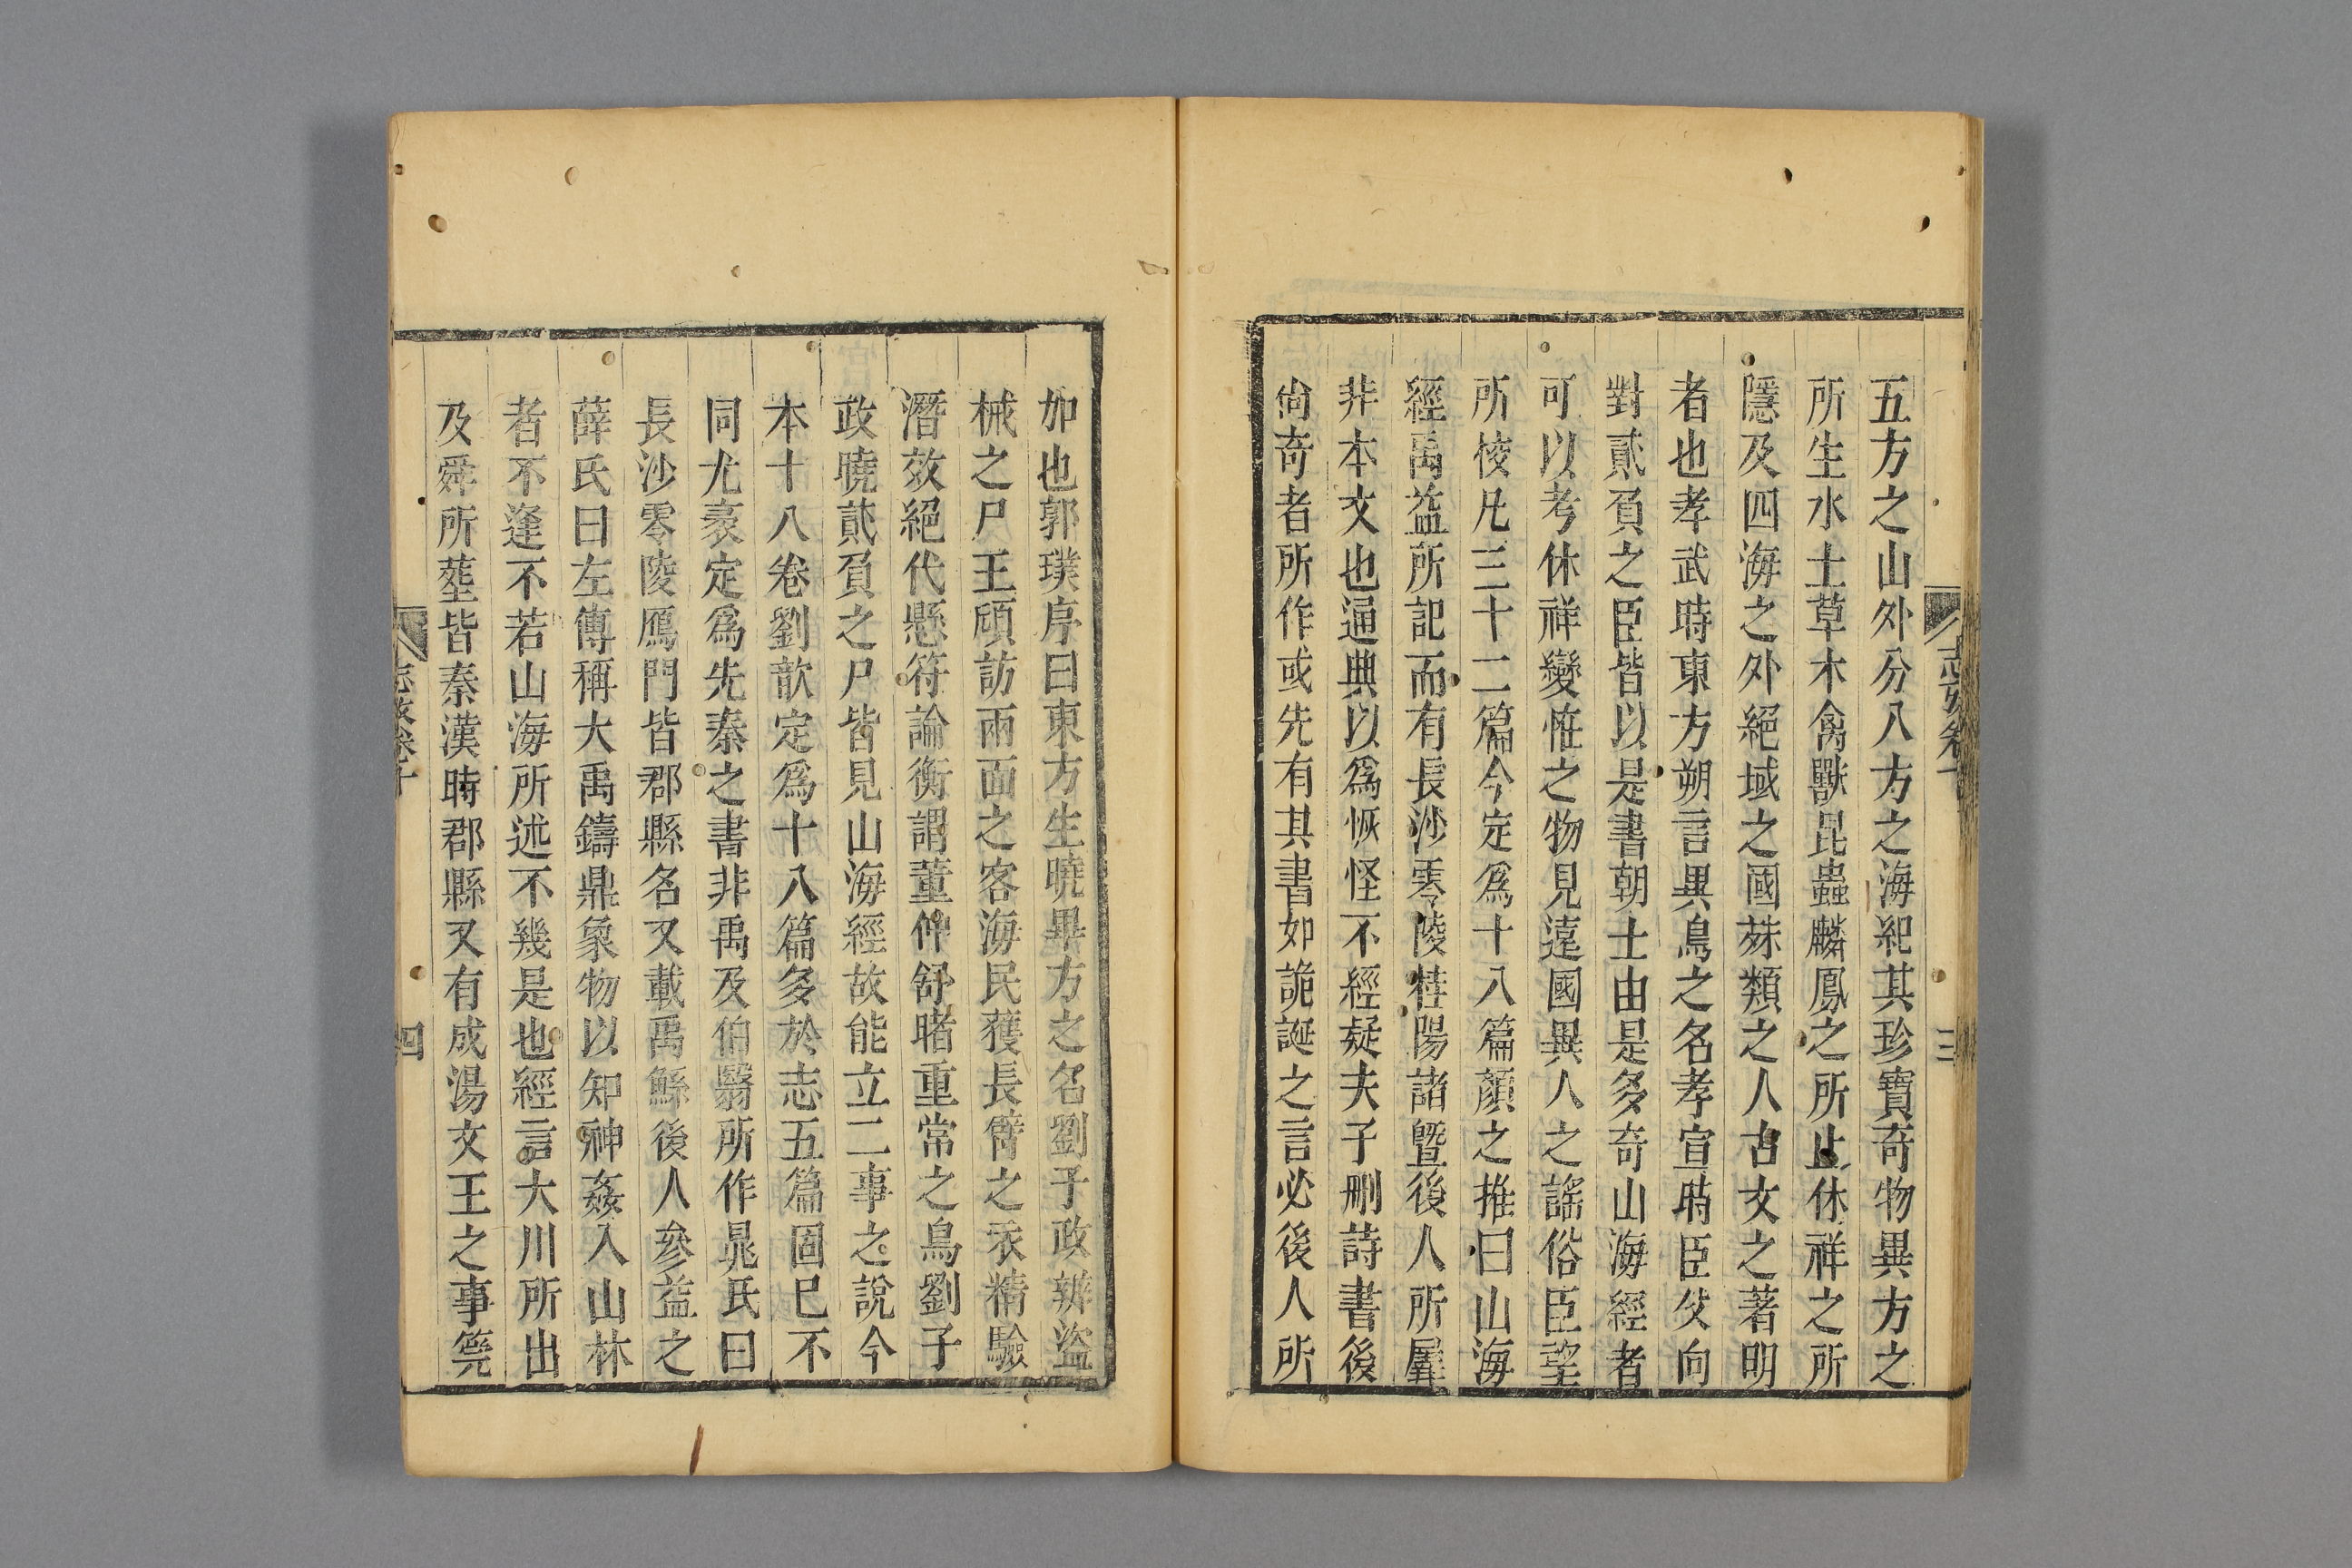 五方之山外分八方之海紀其珍寶奇物異方之
所生水土草木禽獸昆蟲麟鳳之所止休祥之所
隱及四海之外絕域之國殊類之人古文之著明
者也孝武時東方朔言異鳥之名孝宣時臣父向
對貳負之臣皆以是書朝士由是多奇山海經者
可以考休祥變恠之物見遠國異人之謠俗臣望
所挍凡三十二篇今定爲十八篇顏之推曰山海
經禹益所記而有長沙零陵桂陽諸暨後人所羼
非本文也通典以爲恢怪不經疑夫子刪詩書後
尚奇者所作或先有其書如詭誕之言必後人所
加也郭璞序曰東方生曉畢方之名劉子政辨盜
械之尸王頎訪兩面之客海民獲長臂之衣精驗
潛效絕代懸符論衡謂董仲舒睹重常之鳥劉子
政曉貳負之尸皆見山海經故能立二事之說今
本十八卷劉歆定爲十八篇多於志五篇固已不
同尤袤定爲先秦之書非禹及伯翳所作晁氏曰
長沙零陵鴈門皆郡縣名又載禹鯀後人參益之
薛氏曰左傳稱大禹鑄鼎象物以知神姦入山林
者不逢不若山海所述不幾是也經言大川所出
及舜所葬皆秦漢時郡縣又有成湯文王之事筦
四